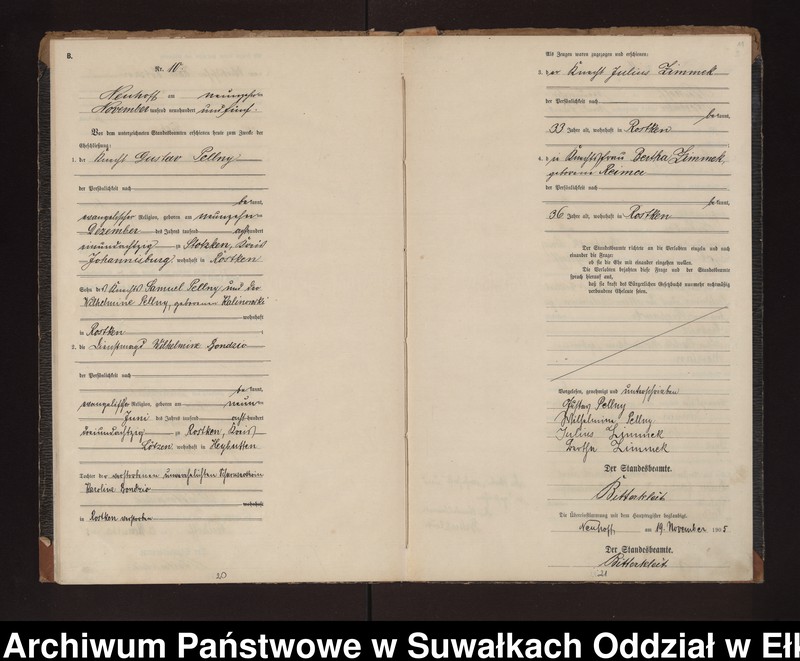 8.
Nr. 10
Neuhoff am neunzehn
November tausend neunhundert und fünf.
Vor dem unterzeichneten Standesbeamten erschienen heute zum Zwecke der
Eheschließung:
1. der Knecht Gustav Pellny
der Persönlichkeit nach
be kannt,
evangelischer Religion, geboren am neunzehn
Dezember des Jahres tausend acht hundert
einundachtzig zu Stotzken, Kreis
Johannisburg wohnhaft in Rostken
Sohn des Knechts Samuel Pellny und der
Wilhelmine Pellny, geborenen
wohnhaft
in Rostken
2. die Dienstmagd Wilhelmine Bondzio
der Persönlichkeit nach
be kannt,
evangelische Religion, geboren am neun
Juni des Jahres tausend acht hundert
dreiundachtzig zu Rostken, Kreis
Lötzen wohnhaft in Heybutten
Tochter der verstorbenen unverehelichten
Karoline Bondzio
wohnhaft
in Rostken verstorben
20
Als Zeugen waren zugezogen und erschienen:
3. der Knecht Julius Zimmek
der Persönlichkeit nach
be kannt,
33 Jahre alt, wohnhaft in Rostken
4. die Knechtsfrau Bertha Zimmek,
geborene Reimer
der Persönlichkeit nach
be kannt,
36 Jahre alt, wohnhaft in Rostken
Der Standesbeamte richtete an die Verlobten einzeln und nach
einander die Frage:
ob sie die Ehe mit einander eingehen wollen.
Die Verlobten bejahten diese Frage und der Standesbeamte
sprach hierauf aus,
daß sie kraft des Bürgerlichen Gesetzbuchs nunmehr rechtmäßig
verbundene Eheleute seien.
Vorgelesen, genehmigt und unterschrieben
Gustav Pellny
Wilhelmine Pellny
Julius Zimmek
Bertha Zimmek
Der Standesbeamte.
Bitterkleit
Die Übereinstimmung mit dem Hauptregister beglaubigt.
Neuhoff, am 19. November 1905
Der Standesbeamte.
Bitterkleit
21
Archiwum Państwowe w Suwałkach Oddział w Ełk